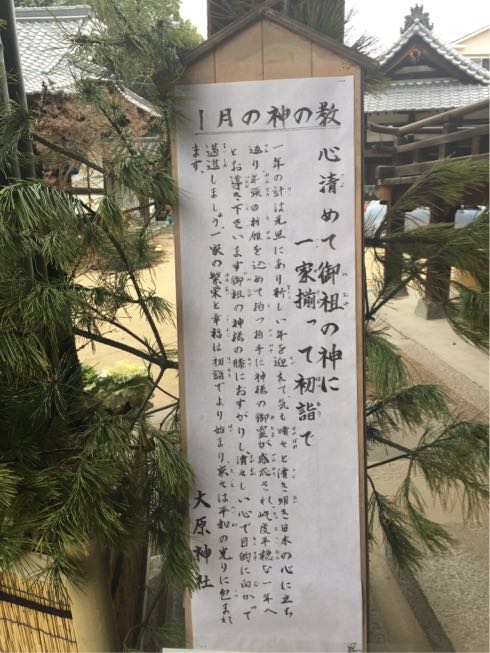 1月の神の教
心清めて御祖の神に
一家揃って初詣で
一年の計は元旦にあり新しい一年を迎えて気も晴々と清き明き日本の心に立ち
返り年頭の祈願を込めて拍つ拍手に神様の御霊が感応され屹度平穏な一年へ
とお導き下さいます御祖の神様の膝におすがりし清々しい心で目的に向かって
邁進しましょう一家の繁栄と幸福は初詣でより始まり家々は平和の光りに包まれ
ます。
大原神社